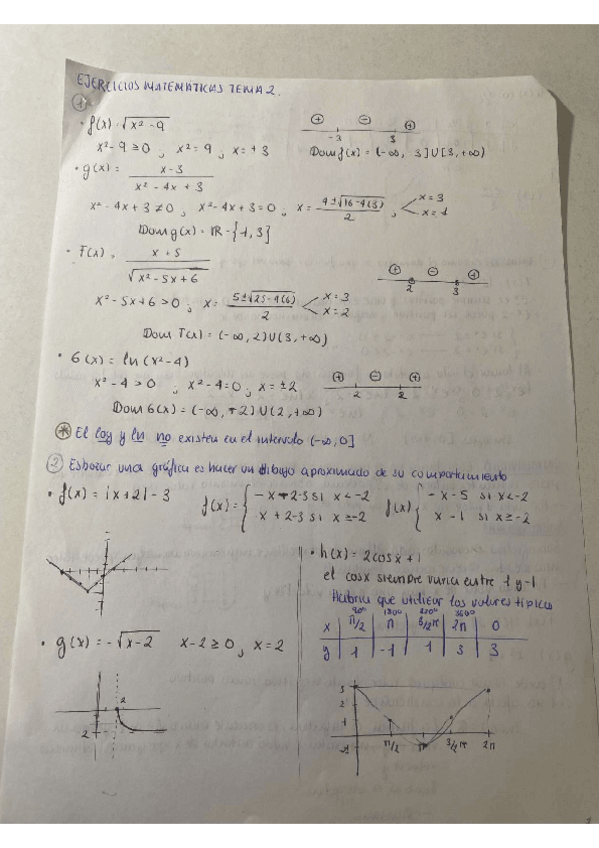 EJERCICIOS MATEMÁTICAS TEMA 2.
①
• f(x) = √(x² - 9)
x² - 9 ≥ 0 , x² = 9 , x = ± 3
⊕ ⊖ ⊕
-3 3
Dom f(x) = (-∞, 3] U [3, +∞)
• g(x) = (x - 3) / (x² - 4x + 3)
x² - 4x + 3 ≠ 0 , x² - 4x + 3 = 0 , x = (4 ± √(16 - 4(3))) / 2 , x = 3
x = 1
Dom g(x) = IR - {1, 3}
• F(x) = (x + 5) / √(x² - 5x + 6)
⊕ ⊖ ⊕
2 3
x² - 5x + 6 > 0 , x = (5 ± √(25 - 4(6))) / 2 x = 3
x = 2
Dom F(x) = (-∞, 2) U (3, +∞)
• G(x) = ln (x² - 4)
x² - 4 > 0 , x² - 4 = 0 , x = ± 2
⊕ ⊖ ⊕
2 2
Dom G(x) = (-∞, -2) U (2, +∞)
⊛ El log y ln no existen en el intervalo (-∞, 0]
② Esbozar una gráfica es hacer un dibujo aproximado de su comportamiento
• f(x) = |x + 2| - 3 f(x) = { -x - 2 - 3 si x < -2 f(x) { -x - 5 si x < -2
x + 2 - 3 si x ≥ -2 x - 1 si x ≥ -2
• h(x) = 2cosx + 1
el cosx siempre varia entre 1 y -1
Habría que utilizar los valores típicos
90º 180º 270º 360º
x π/2 π 3/2π 2π 0
y 1 -1 1 3 3
• g(x) = -√(x - 2) x - 2 ≥ 0 , x = 2
2
2
3
2
1
π/2 π 3/2 π 2π